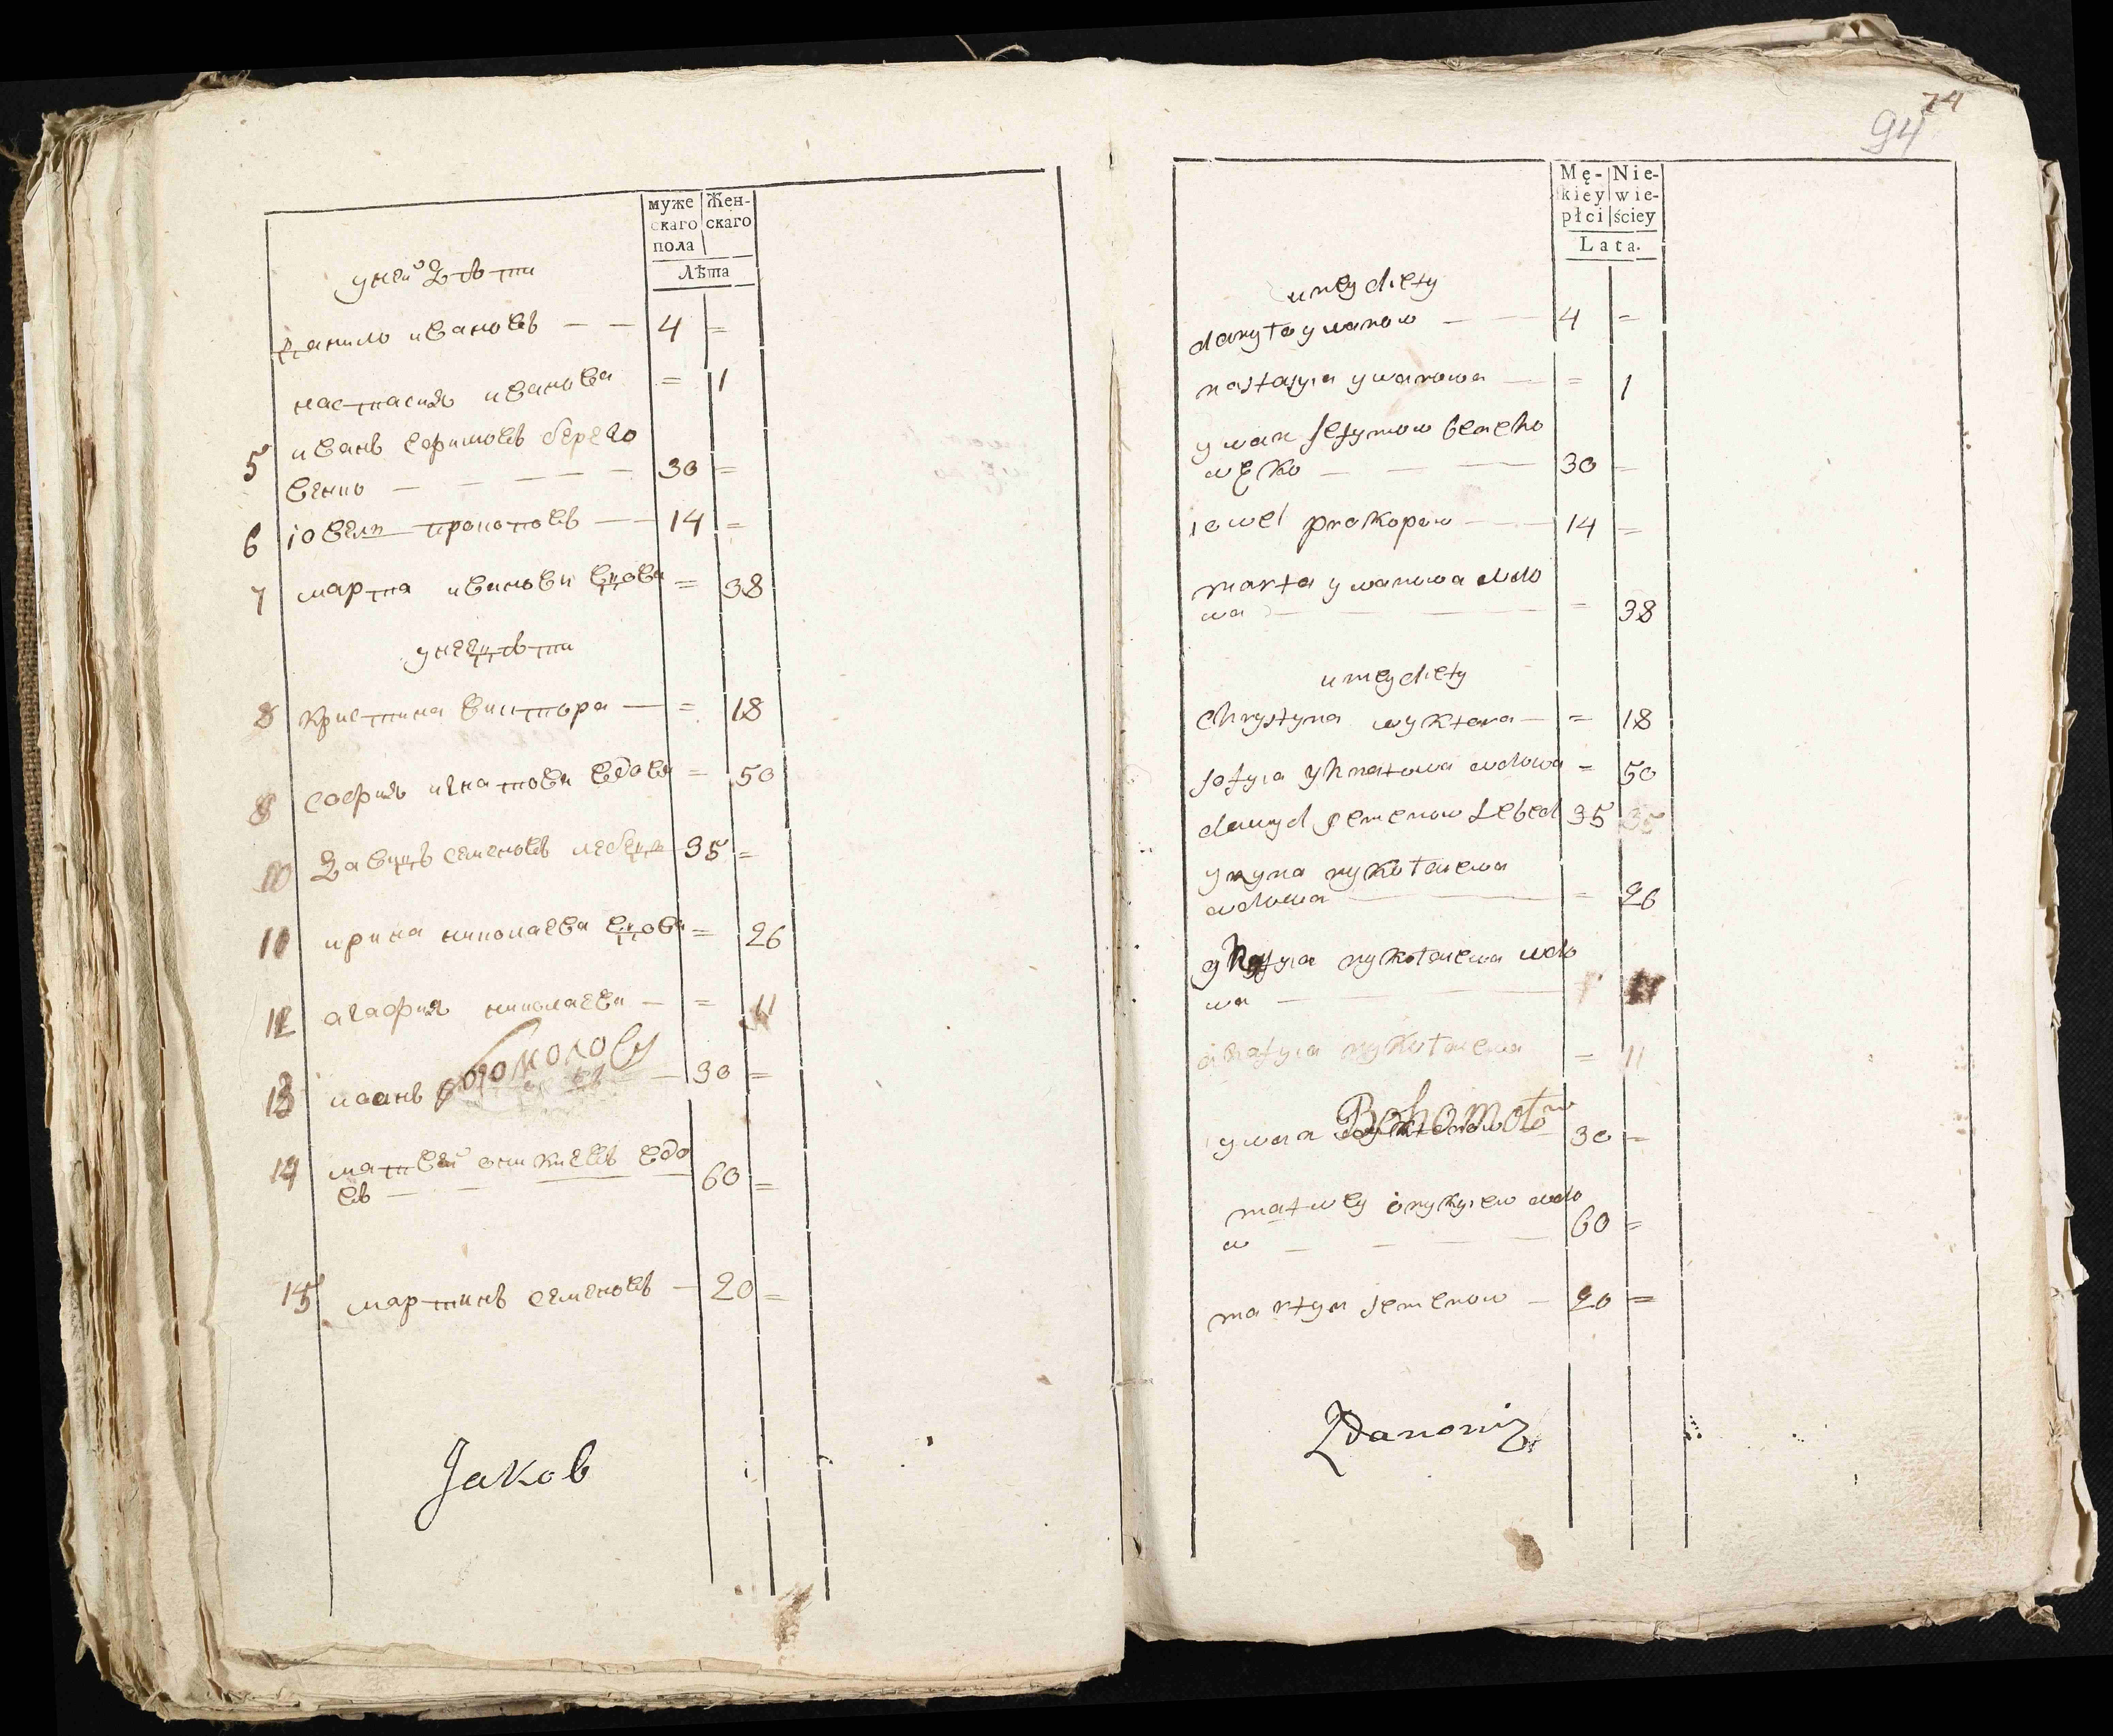 муже
скаго
пола
Жен-
скаго
Лѣта
у ней дѣти
данило ивановъ — — 4 =
настасия иванова = 1
5 иванъ
венко — — — — 30 =
6 іовель прокоповъ — 14 =
7 марта иванова вдова = 38
у нее дѣти
8 кристина виктора — = 18
софия игнатова вдова = 50
10 давыдъ семеновъ лебедь 35 =
ирина николаева вдова = 26
12 агафия николаева — = 11
13 иванъ — 30 =
14 матвей оникиевъ вдо
въ — — — 60 =
15 мартинъ семеновъ — 20 =
Jakob
74
94
Mę-
kiey
płci
Nie-
wie-
ściey
Lata.
u niey diety
danyło ywanow — — 4 =
nastasyia ywanowa — = 1
ywan
— — — 30 =
iowel prokopow — — 14 =
marta ywanowa wdo
wa — — — = 38
u niey diety
chrystyna wyktora — = 18
sofyia yhnatowa wdowa = 50
dawyd semenow Lebed 35
yryna nykołaiewa
wdowa — — = 26
nykołaiewa wdo
wa — — 11
ahafyia nykołaiewa = 11
ywan Bohomołow 30 =
matwey onykyiew wdo
w — — — 60 =
martyn semenow — 20 =
Zdanowicz